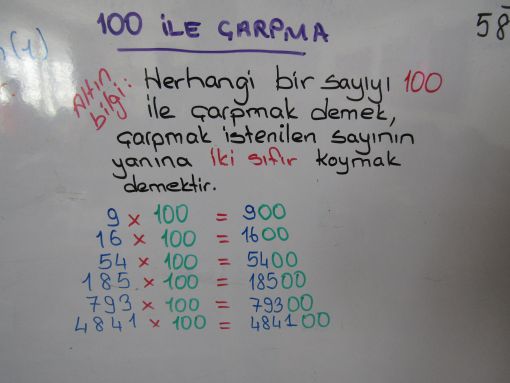 100 İLE ÇARPMA
58
(1)
Altın bilgi:
Herhangi bir sayıyı 100
ile çarpmak demek,
çarpmak istenilen sayının
yanına iki sıfır koymak
demektir.
9 × 100 = 900
16 × 100 = 1600
54 × 100 = 5400
185 × 100 = 18500
793 × 100 = 79300
4841 × 100 = 484100